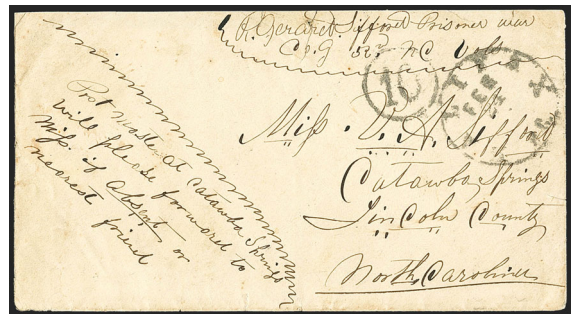 Sifford Prisoner war
Co G 52 NC Vols
10
FEB
Miss V. A. Sifford
Catawba Springs
Lincoln County
North Carolina
Post master at Catawba Springs
will please forward to
Miss if absent or
nearest friend